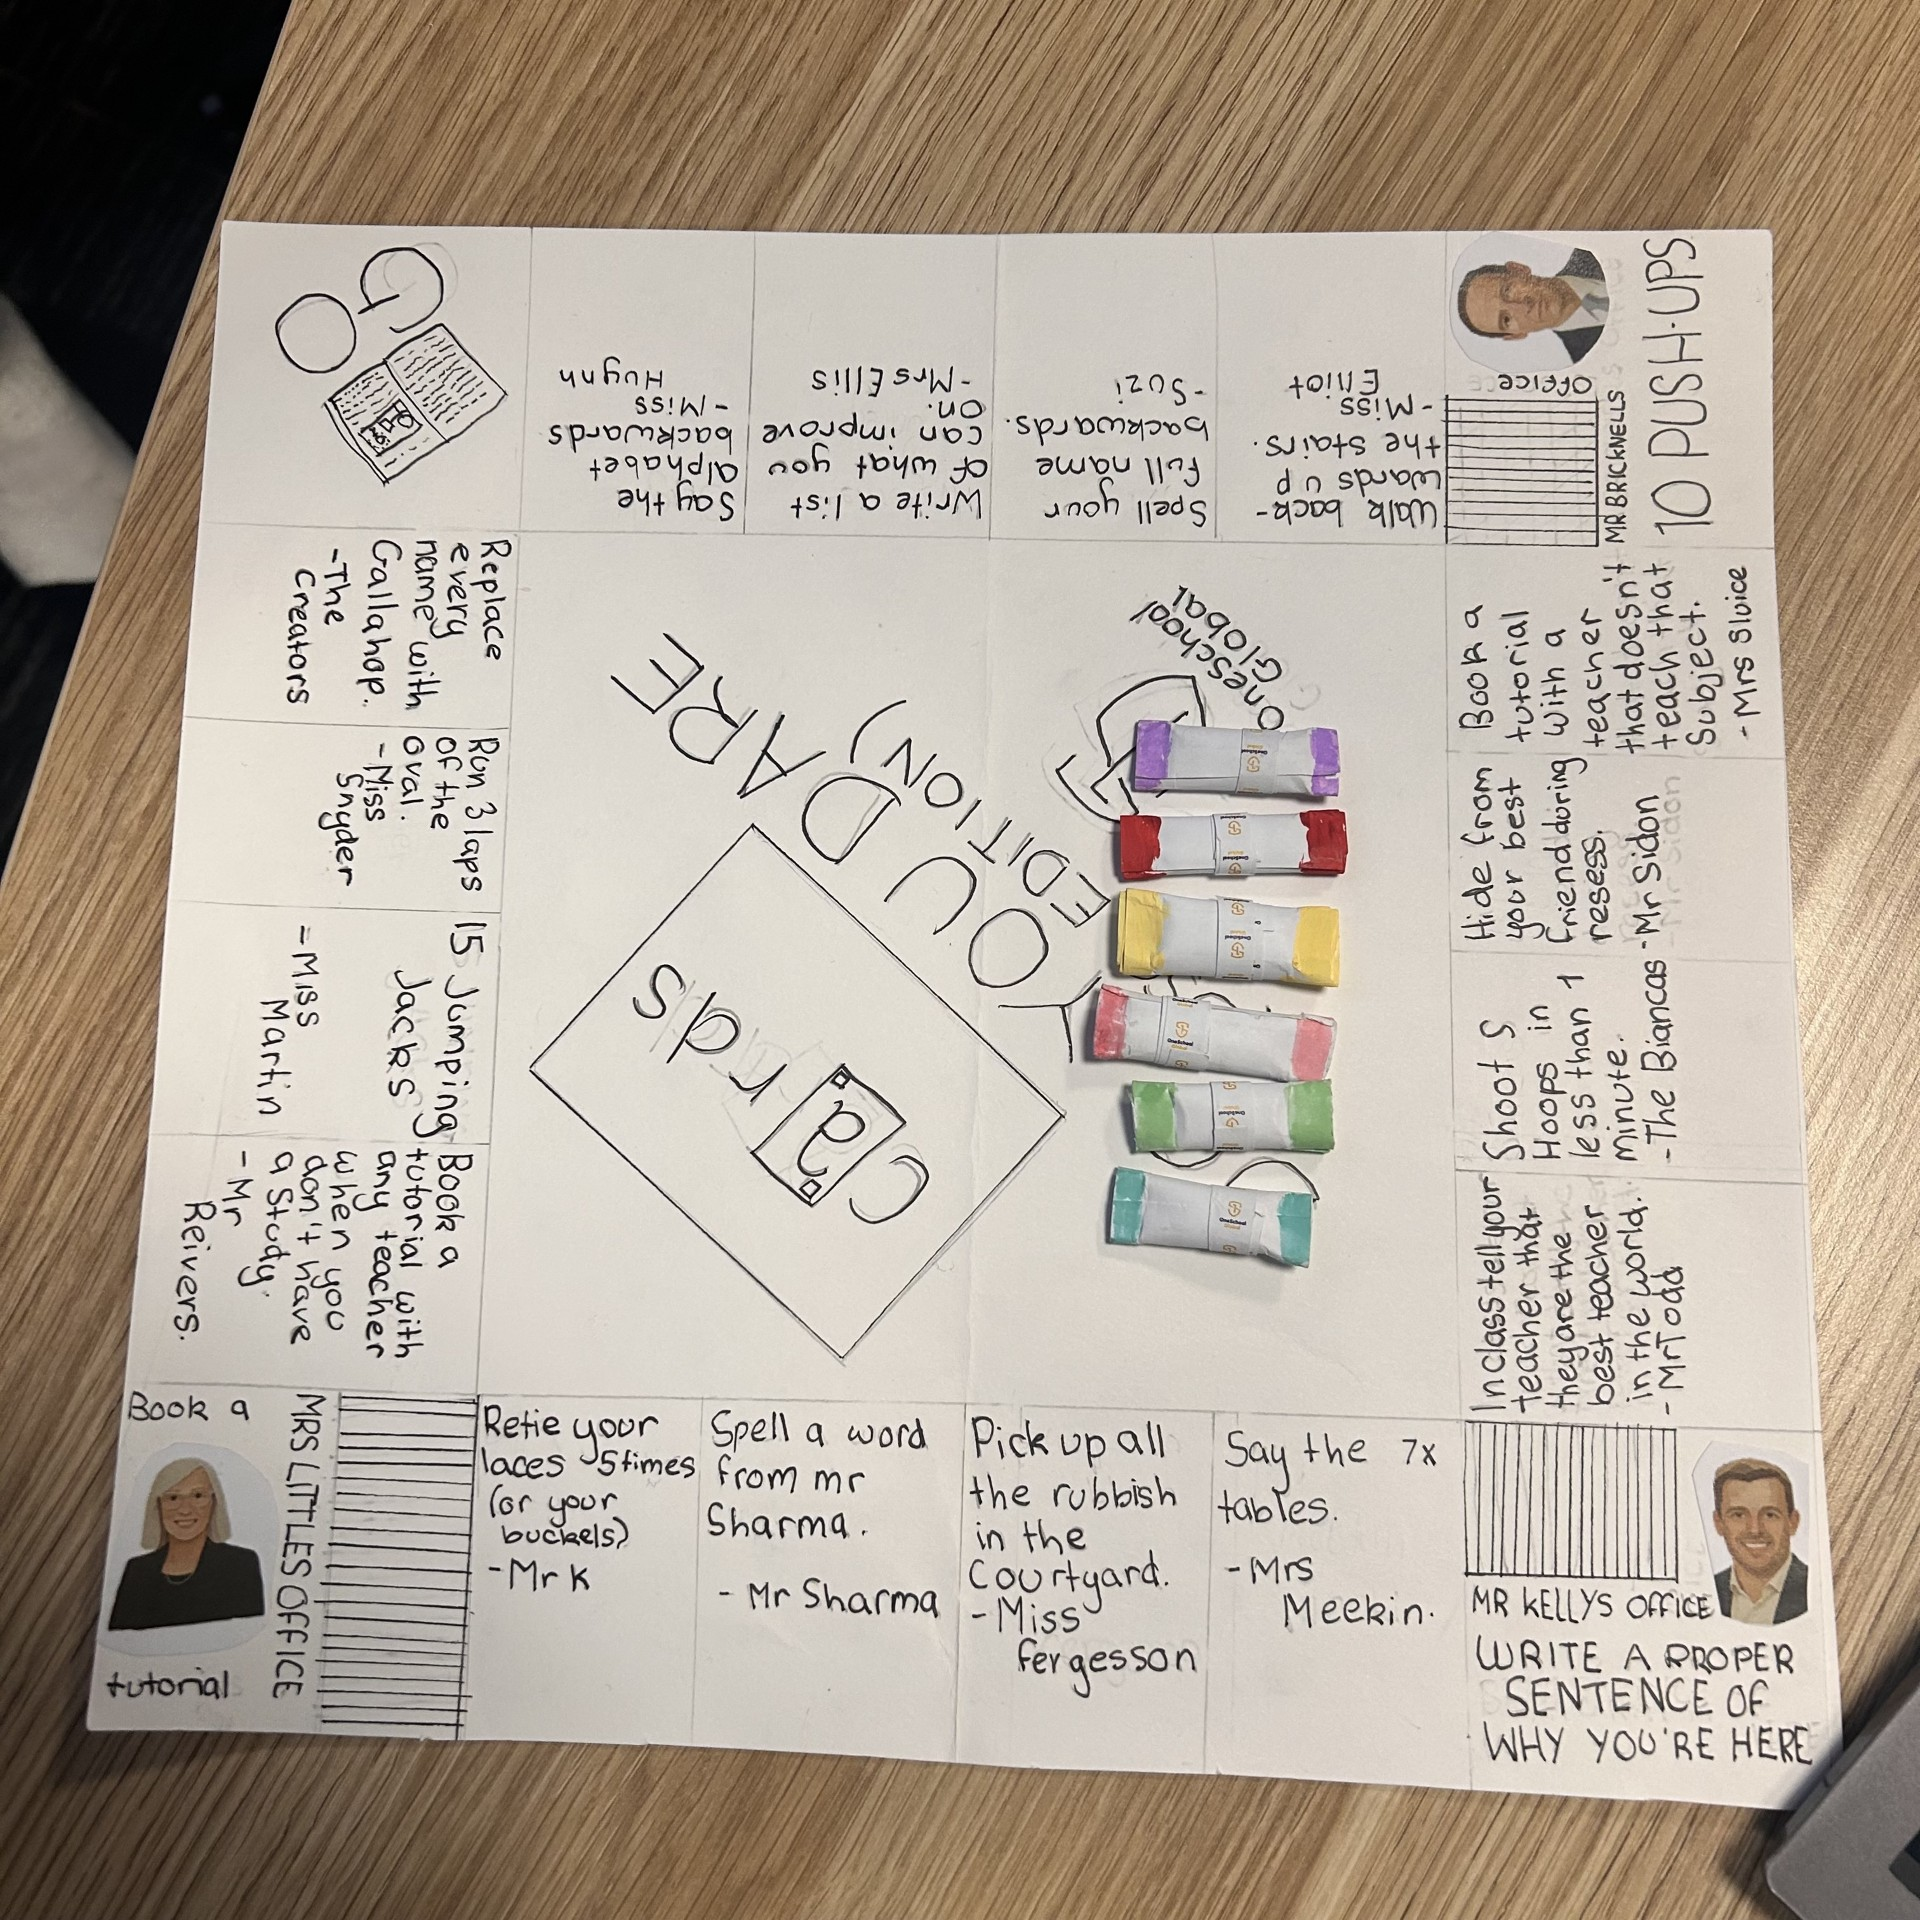 GO
Say the
alphabet
backwards
- Miss
Huynh
Write a list
of what you
can improve
on.
- Mrs Ellis
Spell your
full name
backwards.
- Suzi
Walk back-
wards up
the stairs.
- Miss
Elliot
OFFICE
MR BRICKNELLS
10 PUSH-UPS
Book a
tutorial
with a
teacher
that doesn't
teach that
subject.
- Mrs Sluice
Hide from
your best
friend during
resess.
- Mr Sidon
Shoot 5
Hoops in
less than 1
minute.
- The Biancas
In class tell your
teacher that
they are the
best teacher
in the world.
- Mr Todd
MR KELLYS OFFICE
WRITE A PROPER
SENTENCE OF
WHY YOU'RE HERE
Say the 7x
tables.
- Mrs
Meekin.
Pick up all
the rubbish
in the
Courtyard.
- Miss
fergesson
Spell a word
from mr
Sharma.
- Mr Sharma
Retie your
laces 5times
(or your
buckels)
- Mr K
MRS LITTLES OFFICE
Book a
tutorial
Book a
tutorial with
any teacher
when you
don't have
a Study.
- Mr
Reivers.
15 Jumping
Jacks
- Miss
Martin
Run 3 laps
of the
oval.
- Miss
Snyder
Replace
every
name with
Gallahop.
- The
Creators
YOU DARE
EDITION)
Cards
OneSchool
Global